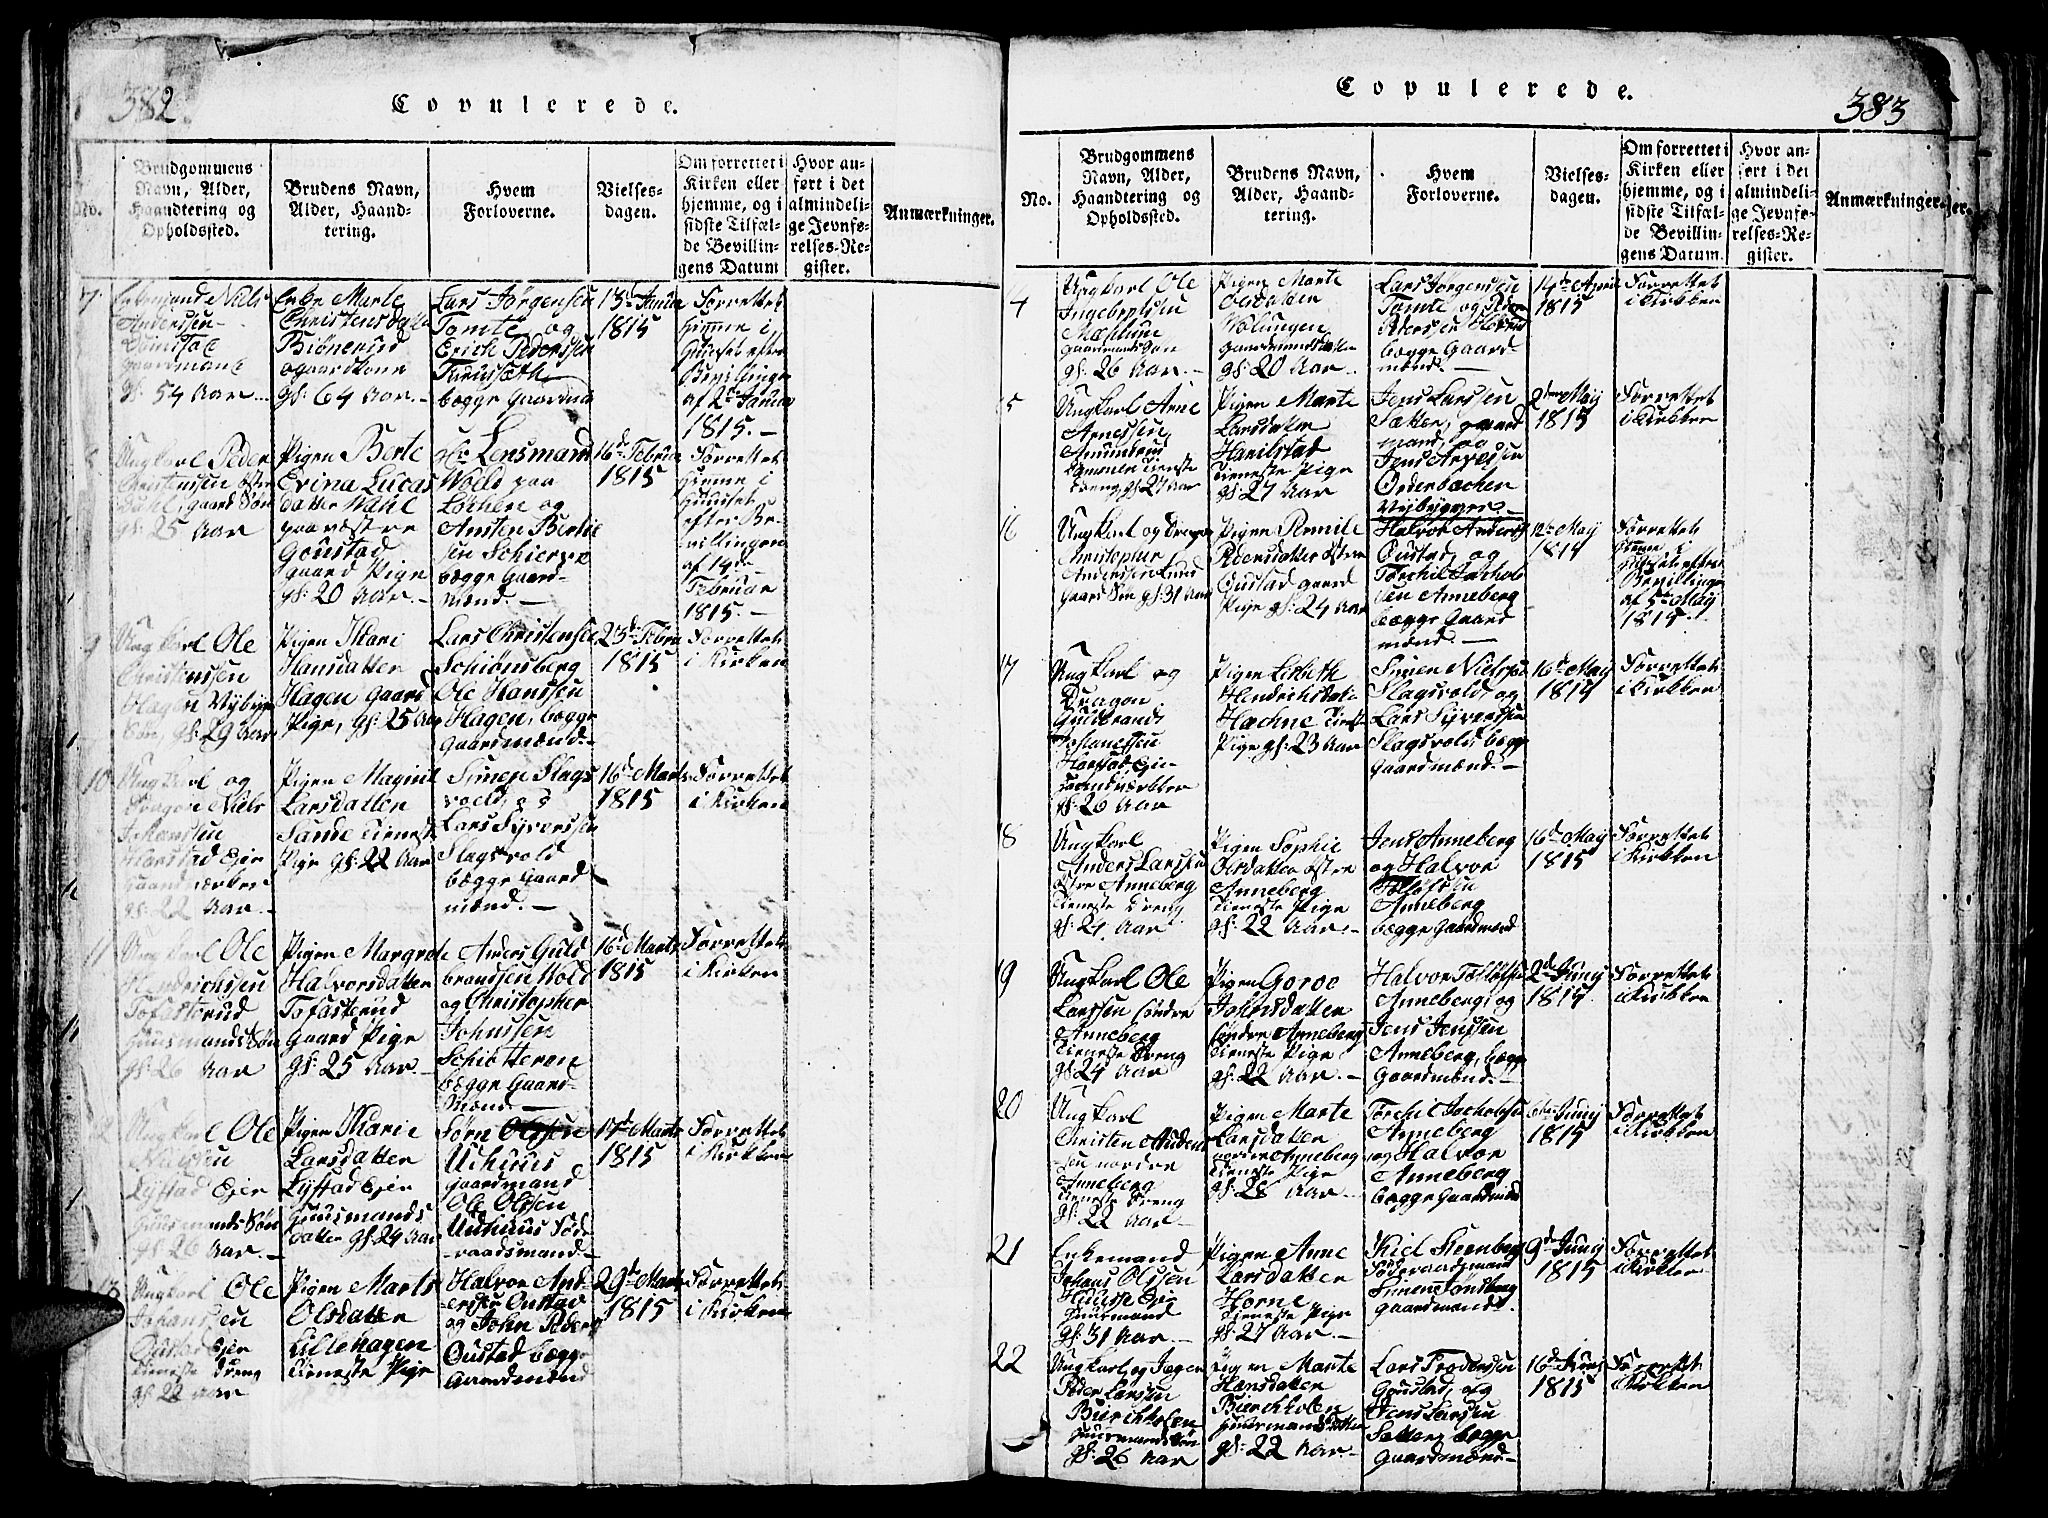 382.
Copulerede.
No.
Brudgommens
Navn, Alder,
Haandtering og
Opholdssted.
Brudens Navn,
Alder, Haand-
tering.
Hvem
Forloverne.
Vielses-
dagen.
Om forrettet i
Kirken eller
hjemme, og i
sidste Tilfæl-
de Bevillin-
gens Datum
Hvor an-
ført i det
almindeli-
ge Jevnfø-
relses-Re-
gister.
Anmærkninger.
7
Enkemand Niels
Anderssen
gaardmand
gl: 54 Aar
Enke Marte
Christensdatter
Biønerud
gaardkone
gl: 64 Aar.-
Lars Jørgensen
Tomte og
Erich Pederssen
begge Gaardmæ
13d Janua
1815
Forrettet
hiemme i
Huuset efter
Bevillinge
af 2d Janua
1815.-
Ungkarl Peder
Christenssen østre
Dahl, gaard Søn
gl: 25 Aar
Pigen Berte
Erina Lucas
datter Wahl
paa væstre
Goustad
gaard Pige
gl: 20 Aar.-
Hr Lensmand
Wold paa
Løchen og
Ansten Bertel
sen Schierpe
begge Gaard-
mænd.-
16d Februa
1815
Forrettet
hiemme i
Huuset
efter Be-
villingen
af 14de
Februar
1815.-
9
Ungkarl Ole
Christenssen
Hagen Nybyge
Søn, gl: 29 Aar
Pigen Mari
Hansdatter
Hagen Gaard
Pige, gl: 25 Aar
Lars Christensen
Schiønsberg
Ole Hanssen
Hagen, begge
Gaardmænd.-
23d Febru
1815
Forrettet
i Kirken
10
Ungkarl og
Dragon Niels
Johanssen
Harstad Ejer
Gaard værker
gl: 22 Aar.-
Pigen Maguil
Larsdatter
Sande Tieneste
Pige gl: 22 Aar
Simen Slags
vold, og
Lars Syverssen
Slagsvold
begge Gaard
mænd.-
16d Marts
1815
Forrettet
i Kirken
11
Ungkarl Ole
Hendrichssen
Tofasterud
Huusmands Søn
gl: 26 Aar
Pigen Margrete
Halvorsdatter
Tofasterud
Gaard Pige
gl: 25 Aar.
Anders Guld
brandssen Wold
og Christopher
Johnssen
Schiotteren
begge Gaard-
mænd.
16d Marts
1815
Forrettet
i Kirken
Ungkarl Ole
Nilssen
Lystad Ejer
Huusmands Søn
gl: 26 Aar.-
Pigen Marie
Larsdatter
Lystad Ejer
Huusmands
datter gl: 24 Aar
Sørn Olssen
Uchuus
gaardmand
Ole Olssen
Uchuus Føde
raadsmand.-
17d Marts
1815
Forrettet
i Kirken
13
Ungkarl Ole
Johanssen
Oustad Ejer
Tieneste Dreng
gl: 22 Aar
Pigen Marte
Olsdatter
Lillehagen
Tieneste Pige
Halvor And
erssen Oustad
og John Peders
Oustad begge
Gaardmænd
29d Marts
1815
Forrettet
i Kirken
383
Copulerede.
No.
Brudgommens
Navn, Alder,
Haandtering og
Opholdssted.
Brudens Navn,
Alder, Haand-
tering.
Hvem
Forloverne.
Vielses-
dagen.
Om forrettet i
Kirken eller
hjemme, og i
sidste Tilfæl-
de Bevillin-
gens Datum.
Hvor an-
ført i det
almindeli-
ge Jevnfø-
relses-Re-
gister.
Anmærkninger.
14
Ungkarl Ole
Ingebretssen
Mæhlum
gaardmands Søn
gl: 26 Aar.
Pigen Marte
Olsdatter
Wolungen
gaardmandsdatter
gl: 20 Aar.-
Lars Jørgensen
Tomte og Peder
Pederssen
begge Gaard-
mænd.-
14de April
1815
Forrettet
i Kirken
15
Ungkarl Arne
Arnessen
Amundrud
Tieneste
Dreng, gl: 27 Aar
Pigen Marte
Larsdatter
Harilstad
Tieneste Pige
gl: 27 Aar
Jens Larssen
Sætter, gaard
mand, og
Jens Arvessen
Orderbachen
Nybygger.-
2den Maij
1815
Forrettet
i Kirken
16
Ungkarl og Dragon
Christopher
Anderssen Lund
gaard Søn gl: 31 Aar
Pigen Pernile
Pedersdatter østre
Oustad gaard
Pige gl: 24 Aar
Halvor Anderss
Oustad, og
Torchil Jachob
sen Anneberg
begge Gaard
mænd.-
12te Maij
1815
Forrettet
hiemme i
Huuset efter
Bevillinge
af 5te Maij
1815.
17
Ungkarl og
Dragon
Gulbrand
Johanessen
Harstad Ejer
gaardværker
gl: 26 Aar
Pigen Lisbeth
Hendrichsdatter
Hachne Tieneste
Pige gl: 23 Aar
Simen Nielssen
Slagsvold, og
Lars Syverssen
Slagsvold begge
Gaardmænd.-
16d Maij
1815
Forrettet
i Kirken
18
Ungkarl
Anders Larssen
østre Anneberg
Tieneste Dreng
gl: 24 Aar
Pigen Sophie
Olsdatter østre
Anneberg
Tieneste Pige
gl: 22 Aar.-
Jens Anneberg
og Halvor
Tollofssen
Anneberg
begge Gaardmænd
16d Maij
1815
Forrettet
i Kirken
19
Ungkarl Ole
Larssen søndre
Anneberg
Tieneste Dreng
gl: 24 Aar
Pigen Goroe
Johnsdatter
søndre Anneberg
Tieneste Pige
gl: 22 Aar.-
Halvor Tollofss
Anneberg, og
Jens Jenssen
Anneberg, begge
Gaardmænd.-
2d Junij
1815
Forrettet
i Kirken
20
Ungkarl
Christen Anders
sen nordre
Anneberg
Tieneste Dreng
gl: 22 Aar.-
Pigen Marte
Larsdatter
nordre Anneberg
Tieneste Pige
gl: 28 Aar.
Torchil Jachobsen
Anneberg
og Halvor
Anneberg
begge Gaardmænd
6te Junij
1815
Forrettet
i Kirken
21
Enkemand
Johans Olssen
Ejer
Huusmand
gl: 31 Aar.-
Pigen Anne
Larsdatter
Horne
Tieneste Pige
gl: 27 Aar.-
Kiel Steenberg
Føderaadsmand
Simen Tøndberg
gaardmand.
9d Junij
1815
Forrettet
i Kirken
22
Ungkarl og Jæger
Peder Larssen
Bierchholen
Huusmands Søn
gl: 26 Aar
Pigen Marte
Hansdatter
Bierchholen
Huusmandsdatter
gl: 22 Aar.-
Lars Troderssen
Goustad, og
Jens Larssen
Sætter begge
Gaardmænd-
16d Junij
1815
Forrettet
i Kirken